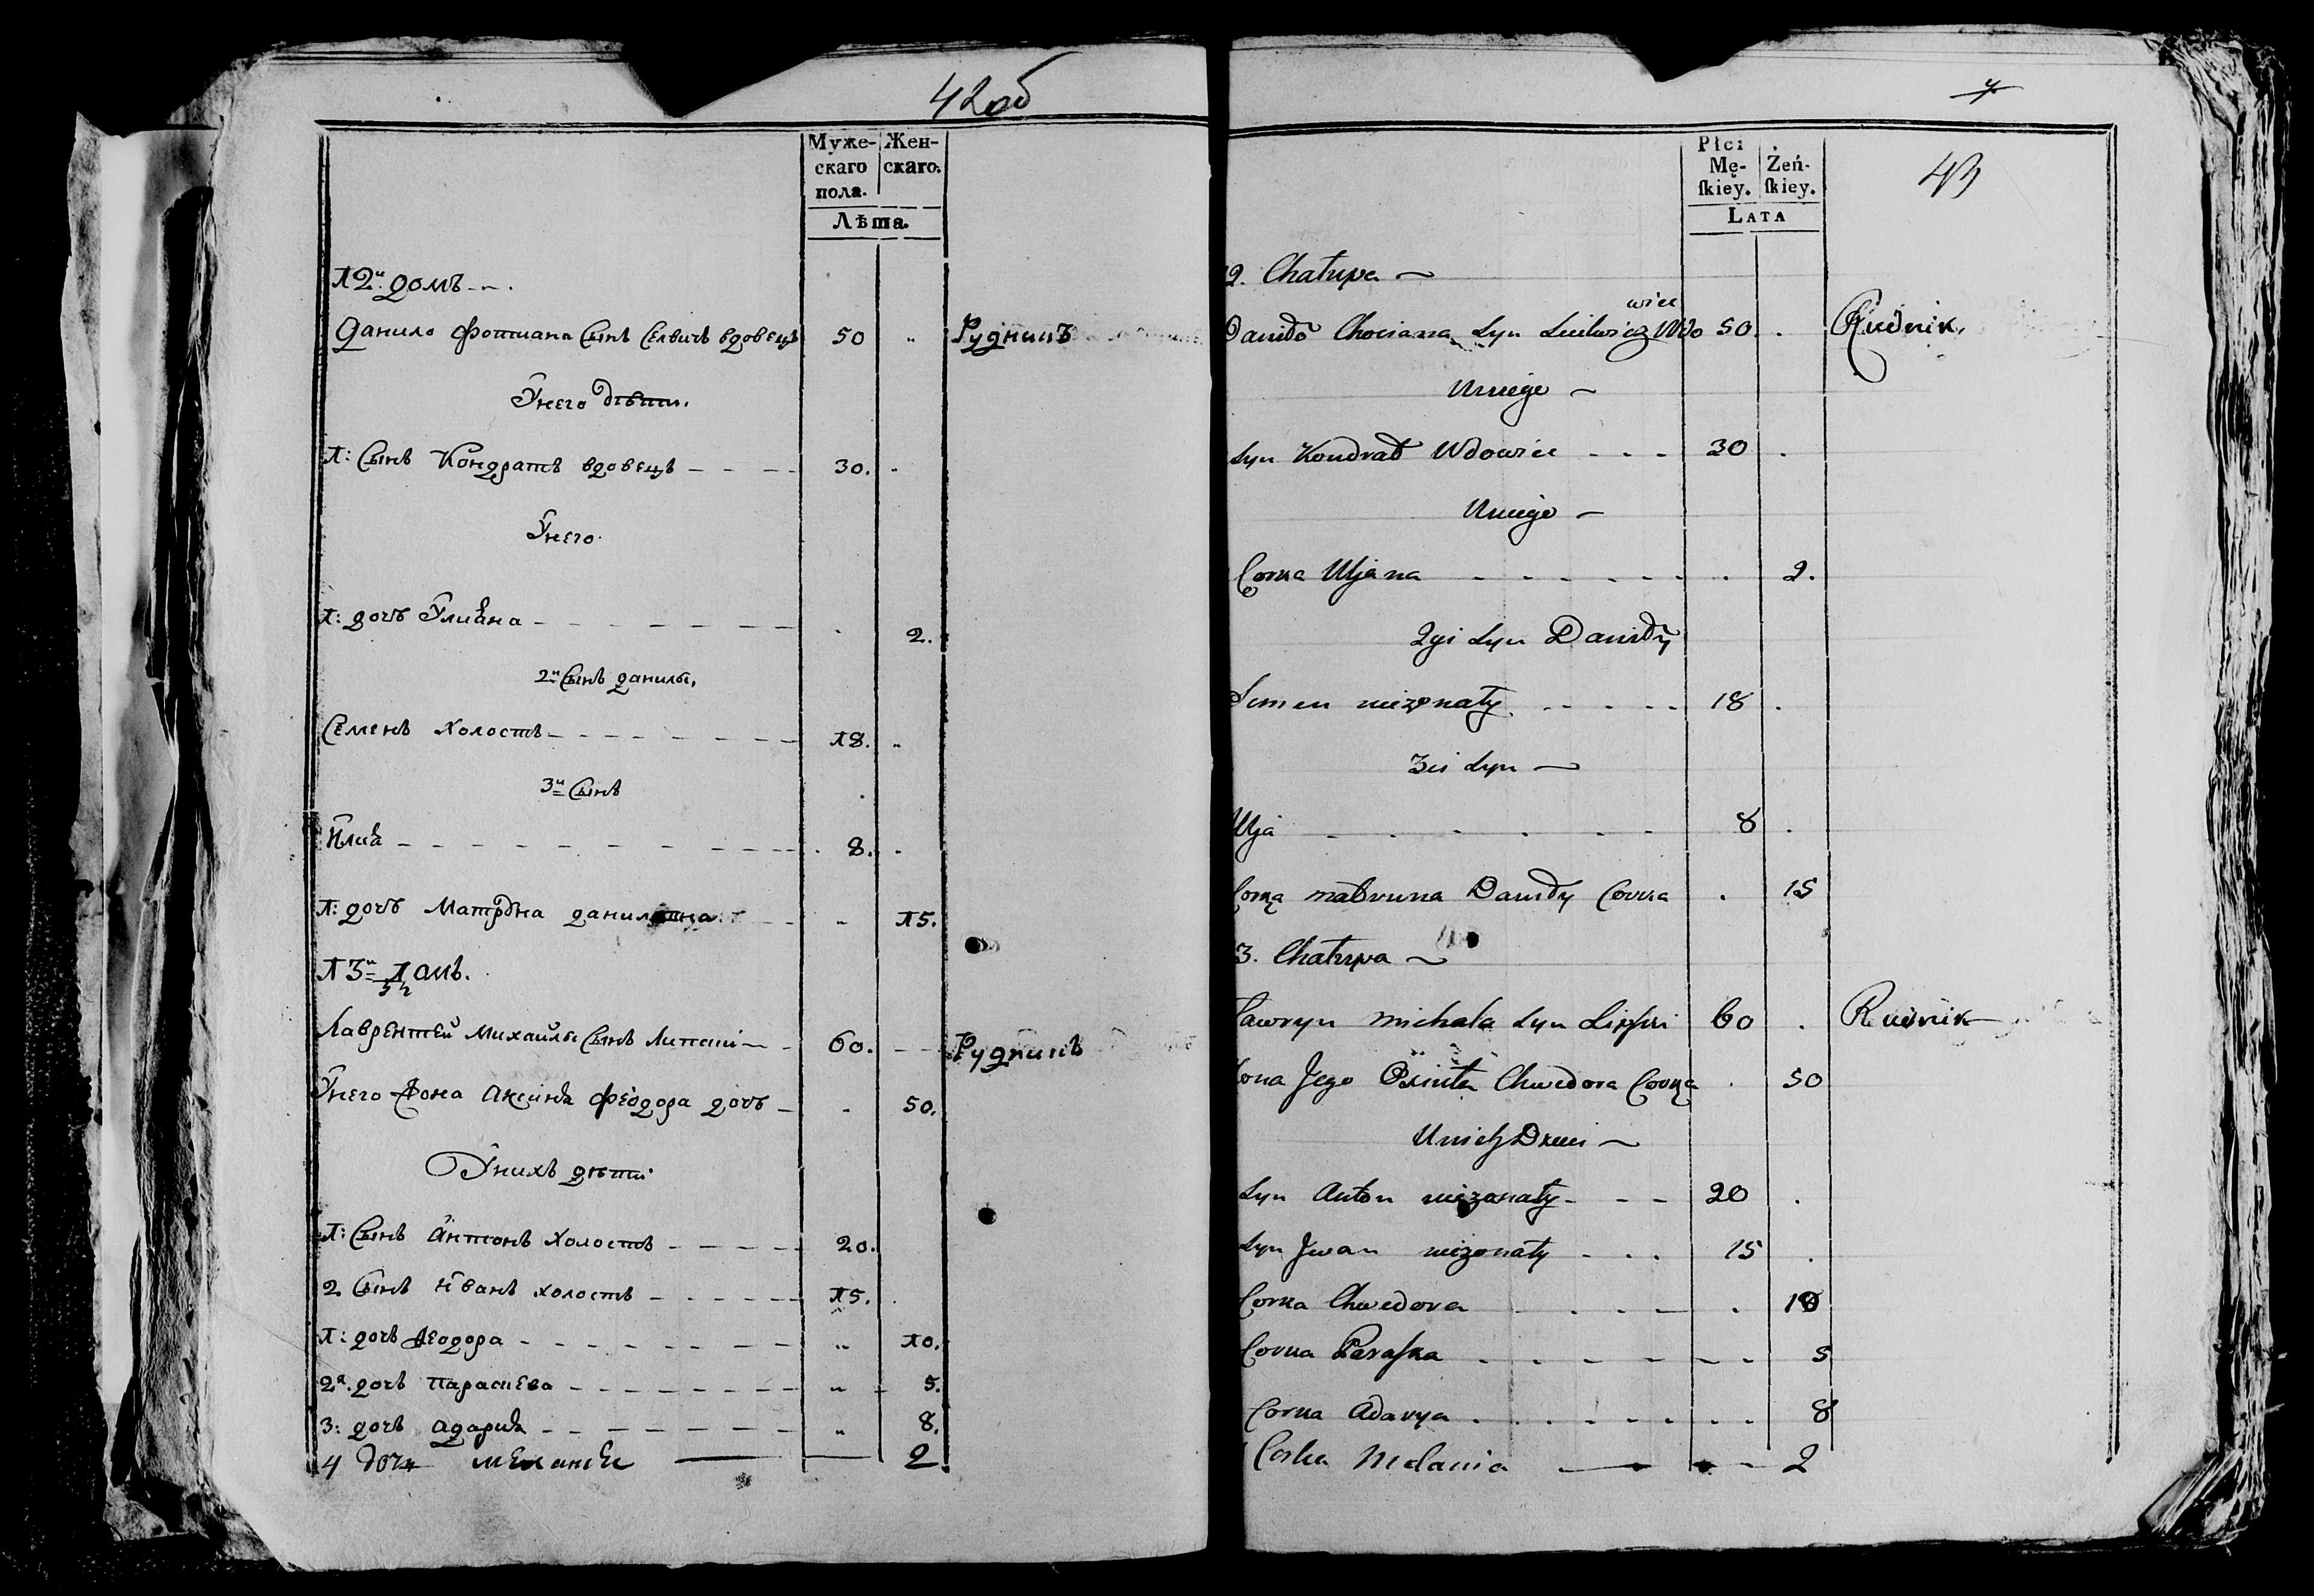 42 об
Муже-
скаго
пола.
Жен-
скаго.
Лѣта.
12й домъ
Данило Фотиана Сынъ вдовецъ 50 Руднинъ
Унего дѣти.
1: Сынъ Кондратъ вдовецъ 30.
Унего
1: дочь Улиана 2.
2й Сынъ данилы.
Семенъ холостъ 18.
3й Сынъ
Илиа 8.
1: дочь Матрона 15.
13й домъ.
Лаврентей Михайлы Сынъ 60. Руднинъ
Унего Жона Аксинia Феодора дочь 50.
Унихъ дѣти
1: Сынъ Антонъ холостъ 20.
2 Сынъ Иванъ холостъ 15.
1: дочь Феодора 10.
2я. дочь Параскева 5.
3: дочь Адариа 8.
4 дочь 2.
43
Płci
Mę-
ſkiey.
Żeń-
ſkiey.
LATA
2. Chałupa
wiec
Daniło Chociana Syn Wdo 50. Rudnik.
Uniego
Syn Kondrat Wdowiec 30
Uniego
Corka Uljana 2.
2gi Syn Daniły
Semen niezonaty 18
3ci Syn
Ilja 8
Corka Matruna Daniły Corka 15
3. Chałupa
Ławryn Michała Syn 60 Rudnik
Żona Jego Chwedora Corka 50
Unich Dzieci
Syn Anton niezonaty 20
Syn Jwan niezonaty 15
Corka Chwedora 10
Corka Paraſka 5
Corka Adarya 8
Corka Melania 2